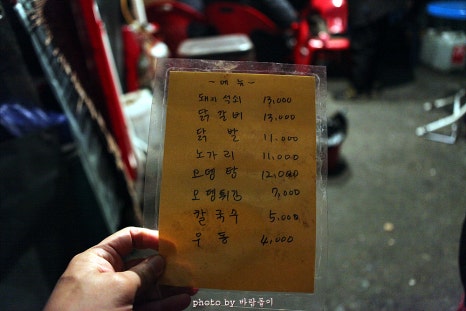 ~ 메 뉴 ~
돼지 석쇠 13,000
닭 갈비 13,000
닭 발 11,000
노가리 11,000
오뎅 탕 12,000
오뎅튀김 7,000
칼국수 5,000
우 동 4,000
photo by 바람돌이